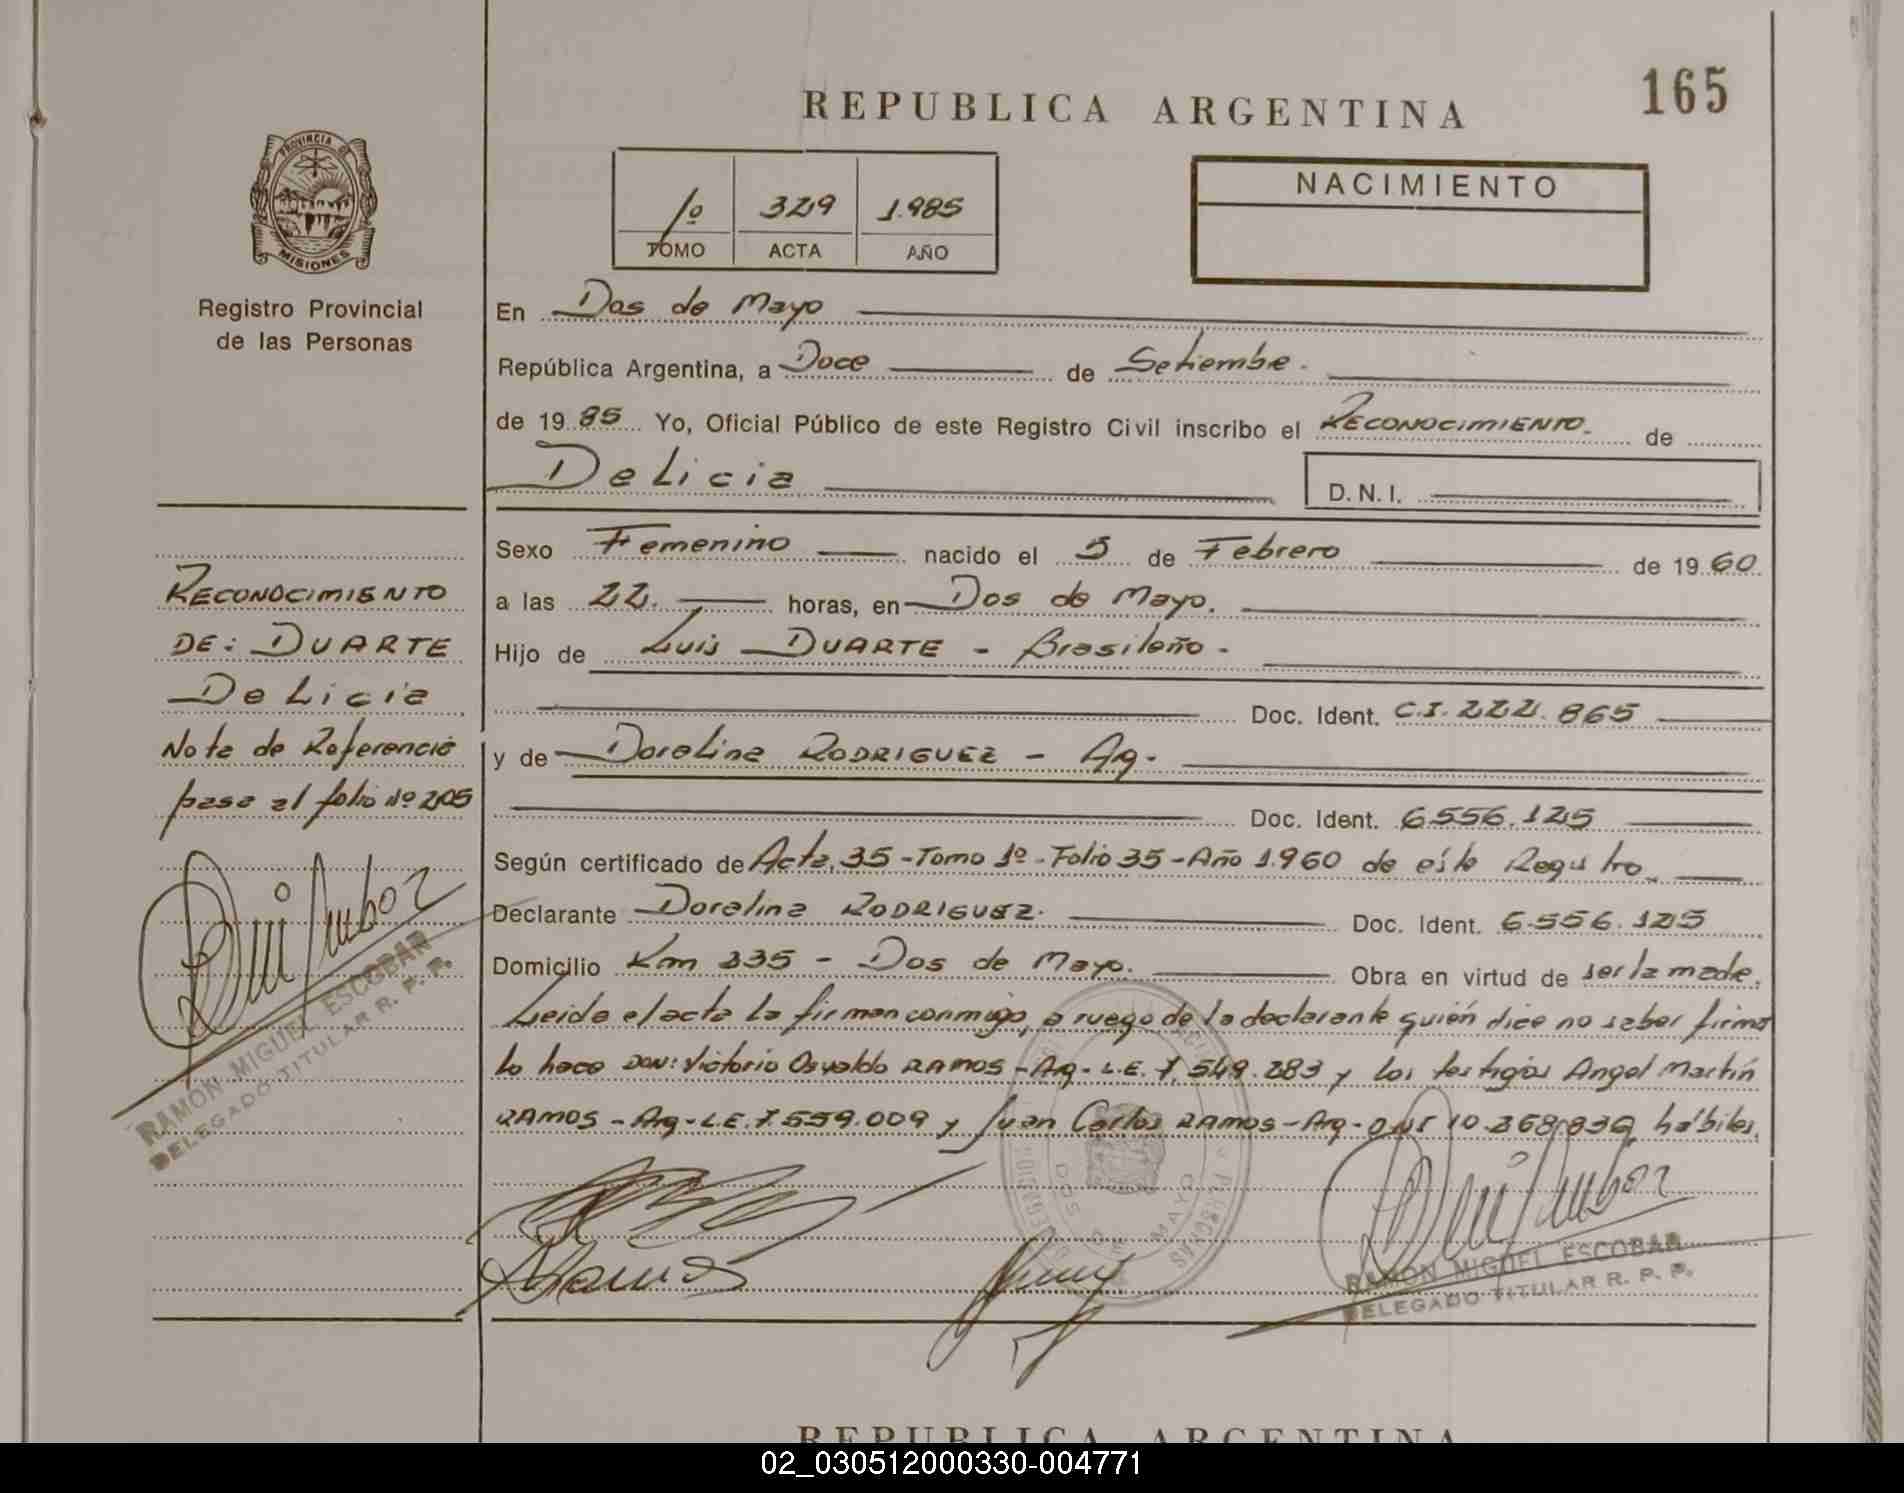 165
REPUBLICA ARGENTINA
PROVINCIA DE
MISIONES
Registro Provincial
de las Personas
1º 329 1.985
TOMO ACTA AÑO
NACIMIENTO
En Dos de Mayo
República Argentina, a Doce de Setiembre.
de 19 85 Yo, Oficial Público de este Registro Civil inscribo el RECONOCIMIENTO. de
Delicia D.N.I.
Sexo Femenino nacido el 5 de Febrero de 19 60
a las 22. horas, en Dos de Mayo.
Hijo de Luis DUARTE - Brasileño -
Doc. Ident. C.I. 222.865
y de Dorelina RODRIGUEZ - Ag.
Doc. Ident. 6.556.125
Según certificado de Acta. 35 - Tomo 1º - Folio 35 - Año 1.960 de éste Registro
Declarante Dorelina RODRIGUEZ. Doc. Ident. 6.556.125
Domicilio Km 235 - Dos de Mayo. Obra en virtud de ser la madre.
Leida el acta la firman conmigo, a ruego de la declarante quién dice no saber firmar
lo hace DON: Victorio Osvaldo RAMOS - Ag - L.E. 7.549.283 y los testigos Angel Martín
RAMOS - Ag - L.E. 7.559.009 y Juan Carlos RAMOS - Arg - DNI 10.268.839 hábiles.
RECONOCIMIENTO
DE: DUARTE
Delicia
Nota de Referencia
pasa al folio Nº 205
RAMON MIGUEL ESCOBAR
DELEGADO TITULAR R. P. P.
DOS DE MAYO
RAMON MIGUEL ESCOBAR
DELEGADO TITULAR R. P. P.
REPUBLICA ARGENTINA
02_030512000330-004771